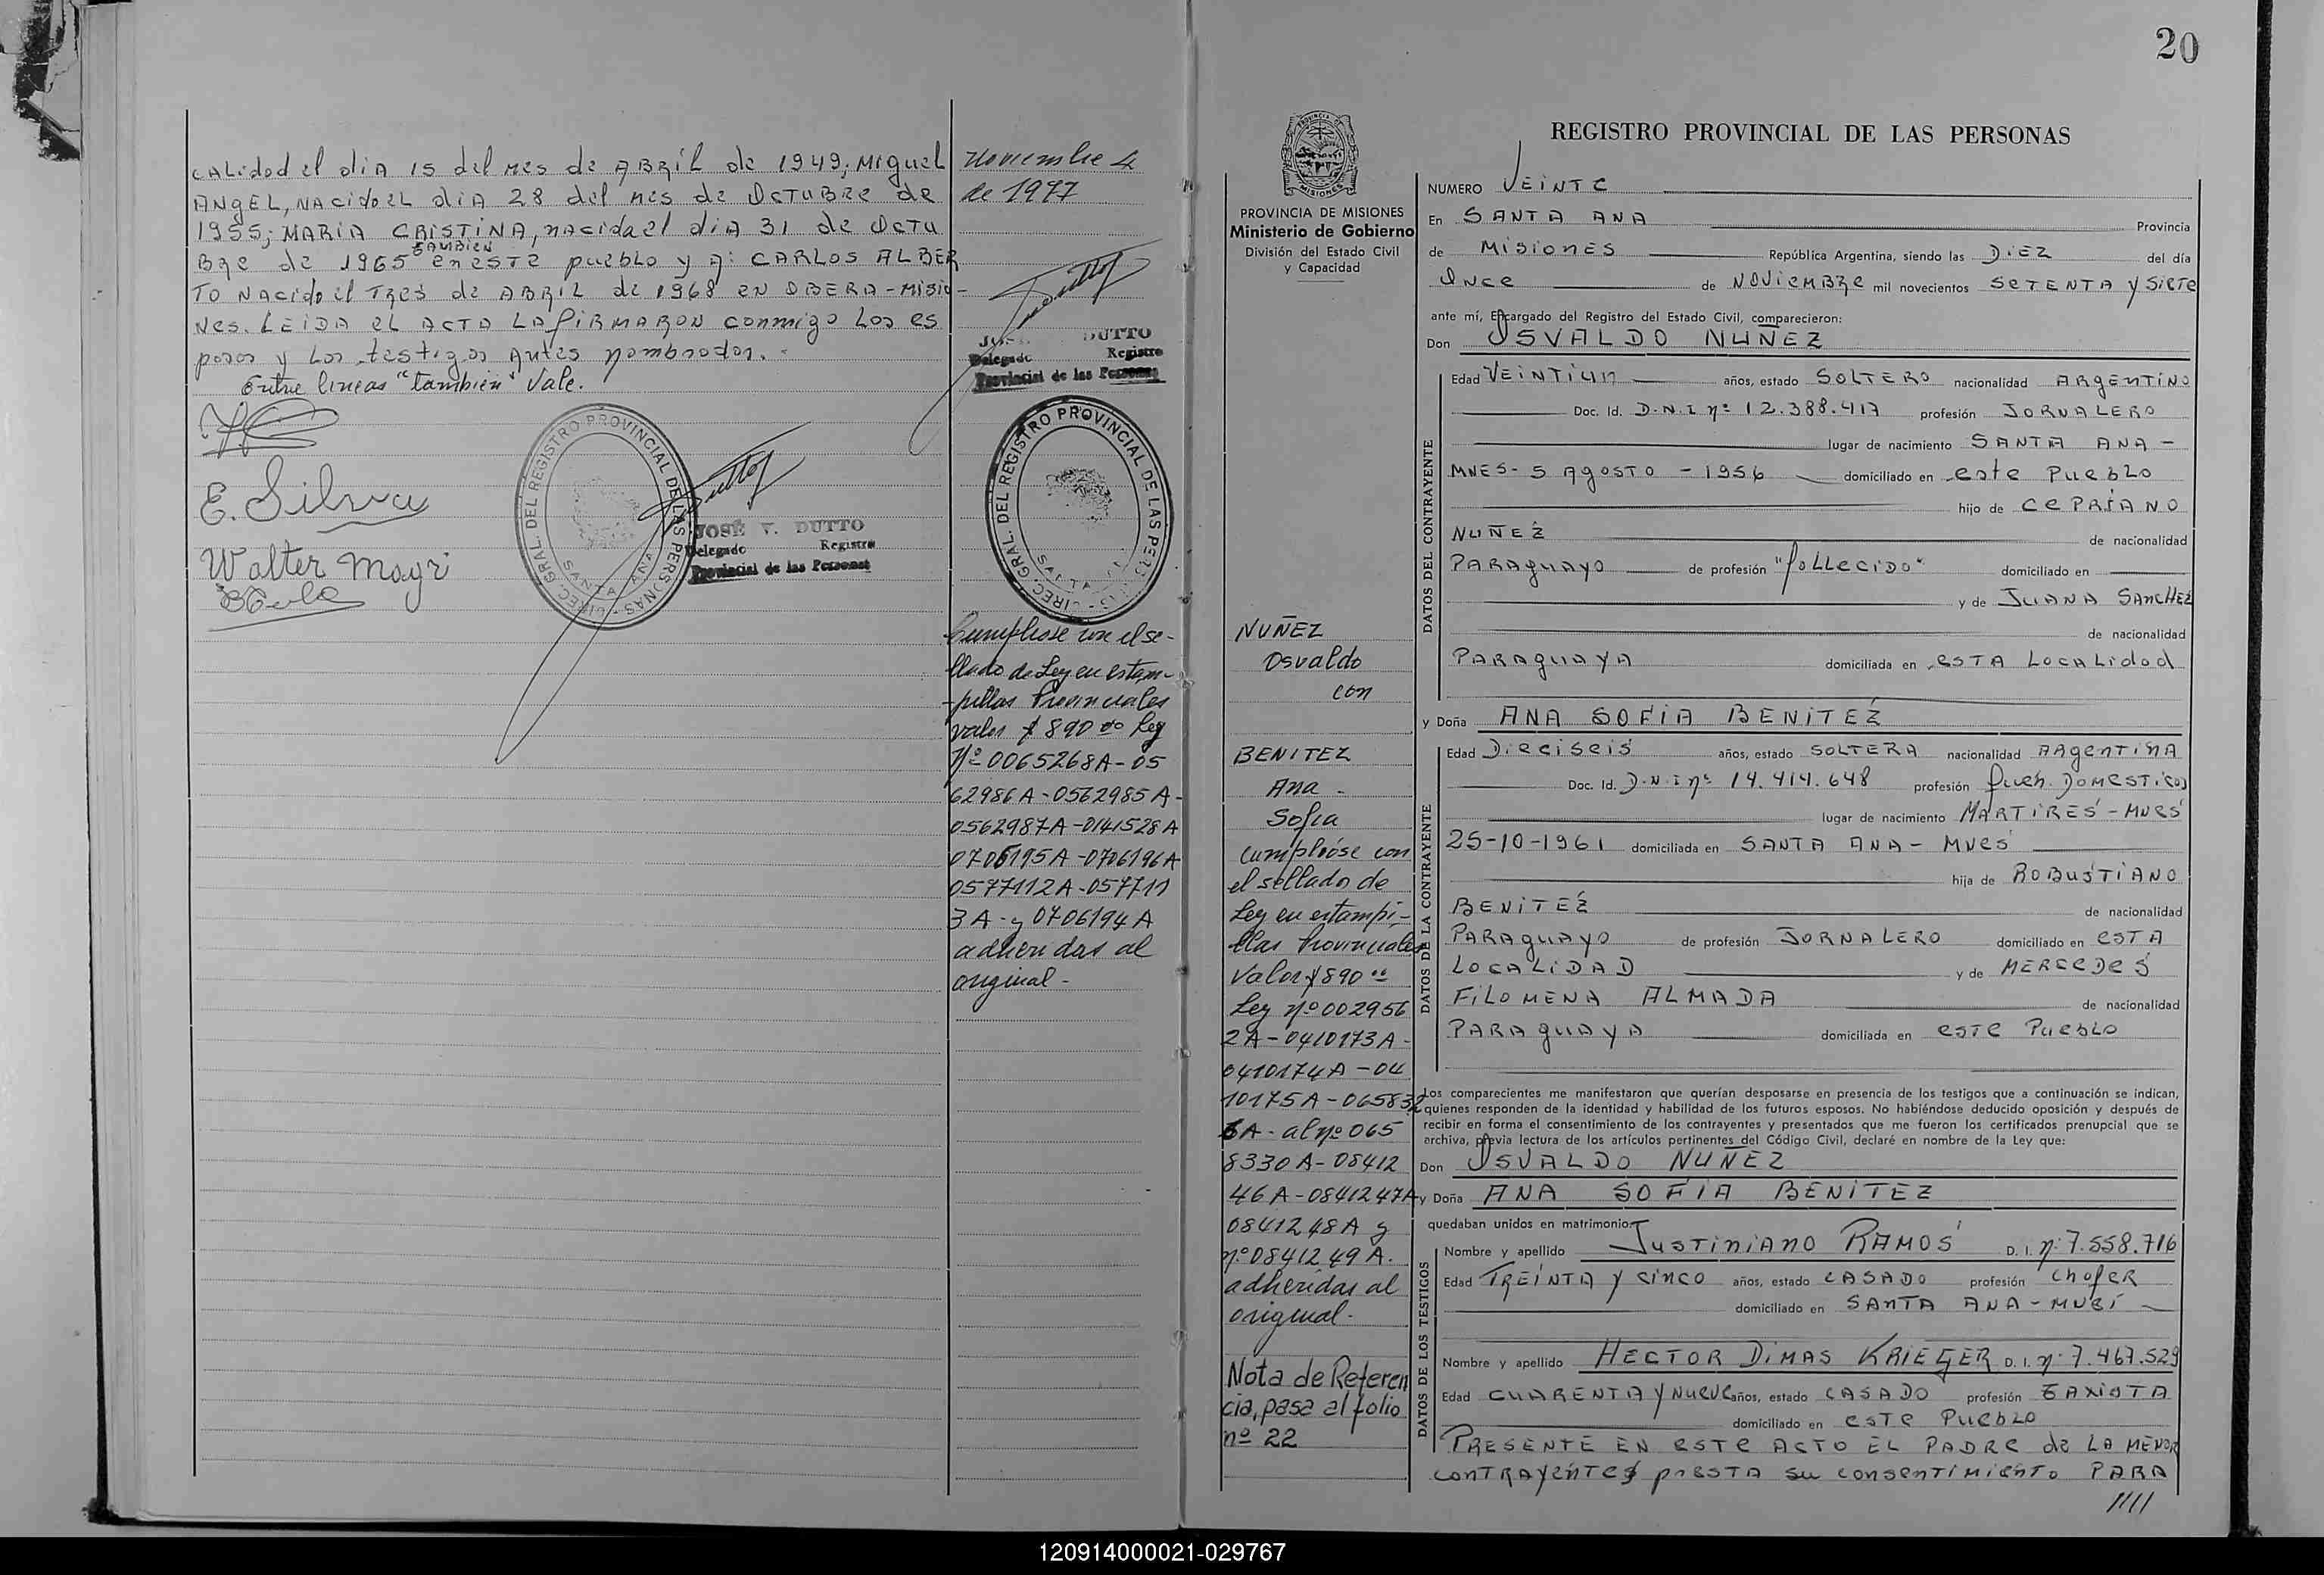 CALidad el diA 15 del mes de ABRiL de 1949; Miguel
ANgEL, NAcido EL diA 28 del mes de OCTUBRE de
1955; MARIA CRISTINA, nacida el diA 31 de OCTU
TAMBIEN
BRE de 1965 en ESTE pueblo y A: CARLOS ALBER
TO NAcido el TRES de ABRIL de 1968 EN OBERA-Misio-
NES. LEIDA EL ACTA LA fiRMARON conmigo Los es
posos y Los testigos Antes nombrados. -
Entre lineas "también" Vale.
E. Silva
Walter Mayr
JOSÉ V. DUTTO
Delegado Registro
Provincial de las Personas
DIREC. GRAL. DEL REGISTRO PROVINCIAL DE LAS PERSONAS -
SANTA ANA
Noviembre 4
de 1977
DUTTO
Delegado Registro
Provincial de las Personas
DIREC. GRAL. DEL REGISTRO PROVINCIAL DE LAS PERS
Cumpliose con el se-
llado de Ley en estam-
-pillas Provinciales
valor $ 890 00 Ley
Nº 0065268A-05
62986A-0562985A-
0562987A-0141528A
0706195A-0706196A
0577112A-057711
3A-y 0706194A
adheridas al
original-
20
PROVINCIA DE MISIONES
Ministerio de Gobierno
División del Estado Civil
y Capacidad
NUÑEZ
Osvaldo
con
BENITEZ
Ana -
Sofia
cumplióse con
el sellado de
Ley en estampi-
llas Provinciales
Valor $ 890 00
Ley nº 002956
2A-0410173A-
0410174A-04
10175A-065832
6A- al nº 065
8330A-08412
46A-0841247A
0841248A y
nº 0841249A.
adheridas al
original-
Nota de Referen
cia, pasa al folio
nº 22
REGISTRO PROVINCIAL DE LAS PERSONAS
NUMERO VEiNTE
En SANTA ANA Provincia
de MisiONES República Argentina, siendo las DiEZ del día
ONce de NOViEMBRE mil novecientos SETENTA y SiETE
ante mí, Encargado del Registro del Estado Civil, comparecieron:
Don OSVALDO NUÑEZ
DATOS DEL CONTRAYENTE
Edad VEiNTiUN años, estado SOLTERO nacionalidad ARgENTiNO
Doc. Id. D.N.I nº 12.388.417 profesión JORNALERO
lugar de nacimiento SANTA ANA -
MNES- 5 AgOSTO - 1956 domiciliado en este PUEBLO
hijo de CEPRIANO
NUÑEZ de nacionalidad
PARAguAyO de profesión "fALLECiDO" domiciliado en
y de JUANA SANCHEZ
de nacionalidad
PARAguAyA domiciliada en ESTA LocALidad
y Doña ANA SOFIA BENITEZ
DATOS DE LA CONTRAYENTE
Edad DiECiSEiS años, estado SOLTERA nacionalidad ARgENTINA
Doc. Id. D.N.I nº 14.414.648 profesión queh. DOMESTICOS
lugar de nacimiento MARTIRES - MNES
25-10-1961 domiciliada en SANTA ANA - MNES
hija de ROBUSTIANO
BENITEZ de nacionalidad
PARAguAyO de profesión JORNALERO domiciliado en ESTA
LOCALIDAD y de MERCEDES
FILOMENA ALMADA de nacionalidad
PARAguAyA domiciliada en ESTE PUEBLO
Los comparecientes me manifestaron que querían desposarse en presencia de los testigos que a continuación se indican,
quienes responden de la identidad y habilidad de los futuros esposos. No habiéndose deducido oposición y después de
recibir en forma el consentimiento de los contrayentes y presentados que me fueron los certificados prenupcial que se
archiva, previa lectura de los artículos pertinentes del Código Civil, declaré en nombre de la Ley que:
Don OSVALDO NUÑEZ
y Doña ANA SOFIA BENITEZ
quedaban unidos en matrimonio.
DATOS DE LOS TESTIGOS
Nombre y apellido JUSTINIANO RAMOS D. I. nº 7.558.716
Edad TREINTA y CINCO años, estado CASADO profesión chofER
domiciliado en SANTA ANA-
Nombre y apellido HECTOR DIMAS KRIEGER D. I. nº 7.467.529
Edad CUARENTA y NUEVE años, estado CASADO profesión TAXISTA
domiciliado en ESTE PUEBLO
PRESENTE EN ESTE ACTO EL PADRE de LA MENOR
CONTRAYENTE PRESTA su CONSENTIMIENTO PARA
////
120914000021-029767